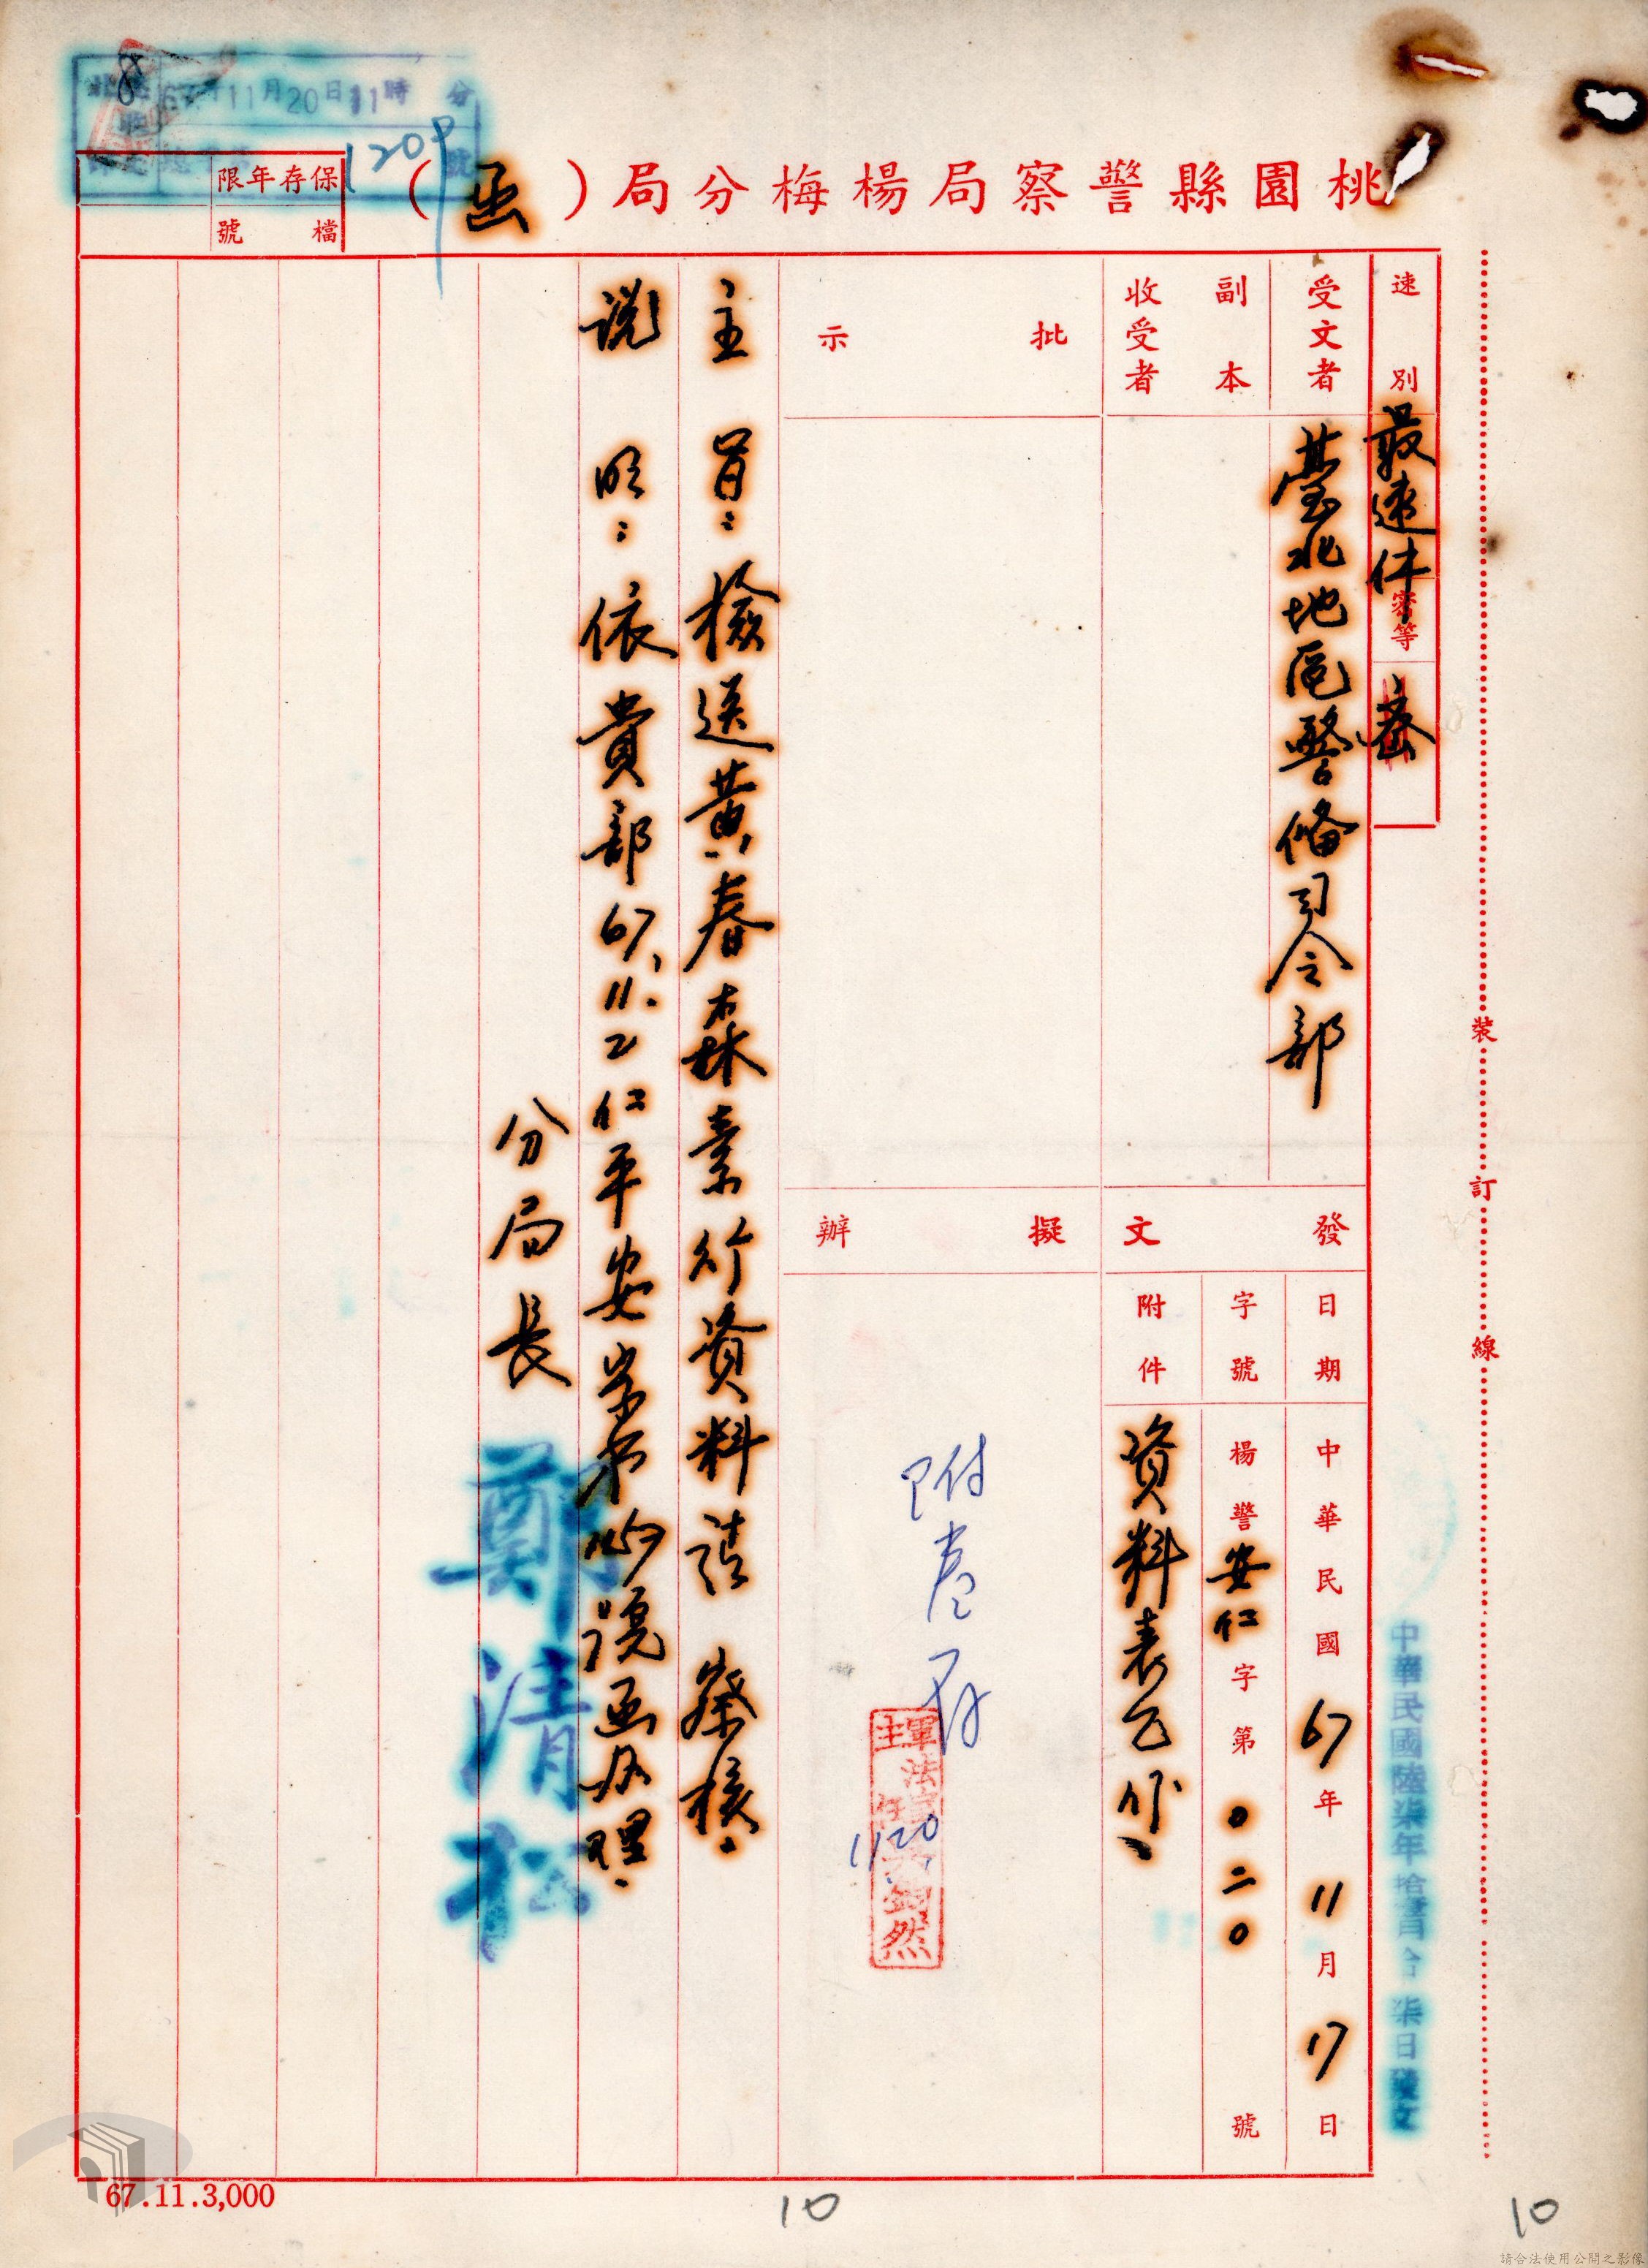 桃園縣警察局楊梅分局（函）
保存年限
檔號
67年11月20日11時 分
號
1209
速別 最速件
密等 密
受文者 臺北地區警備司令部
副本
收受者
批示
發文
日期 中華民國67年11月17日
字號 楊警安仁字第０二０號
附件 資料表乙份
擬辦
附卷存
11.20
主旨：檢送黃春森素行資料請 察核。
說明：依貴部67.11.2仁平安字第 號函辦理。
分局長 鄭清松
中華民國陸柒年拾壹月 柒日發文
裝
訂
線
67.11.3,000
10
10
請合法使用公開之影像